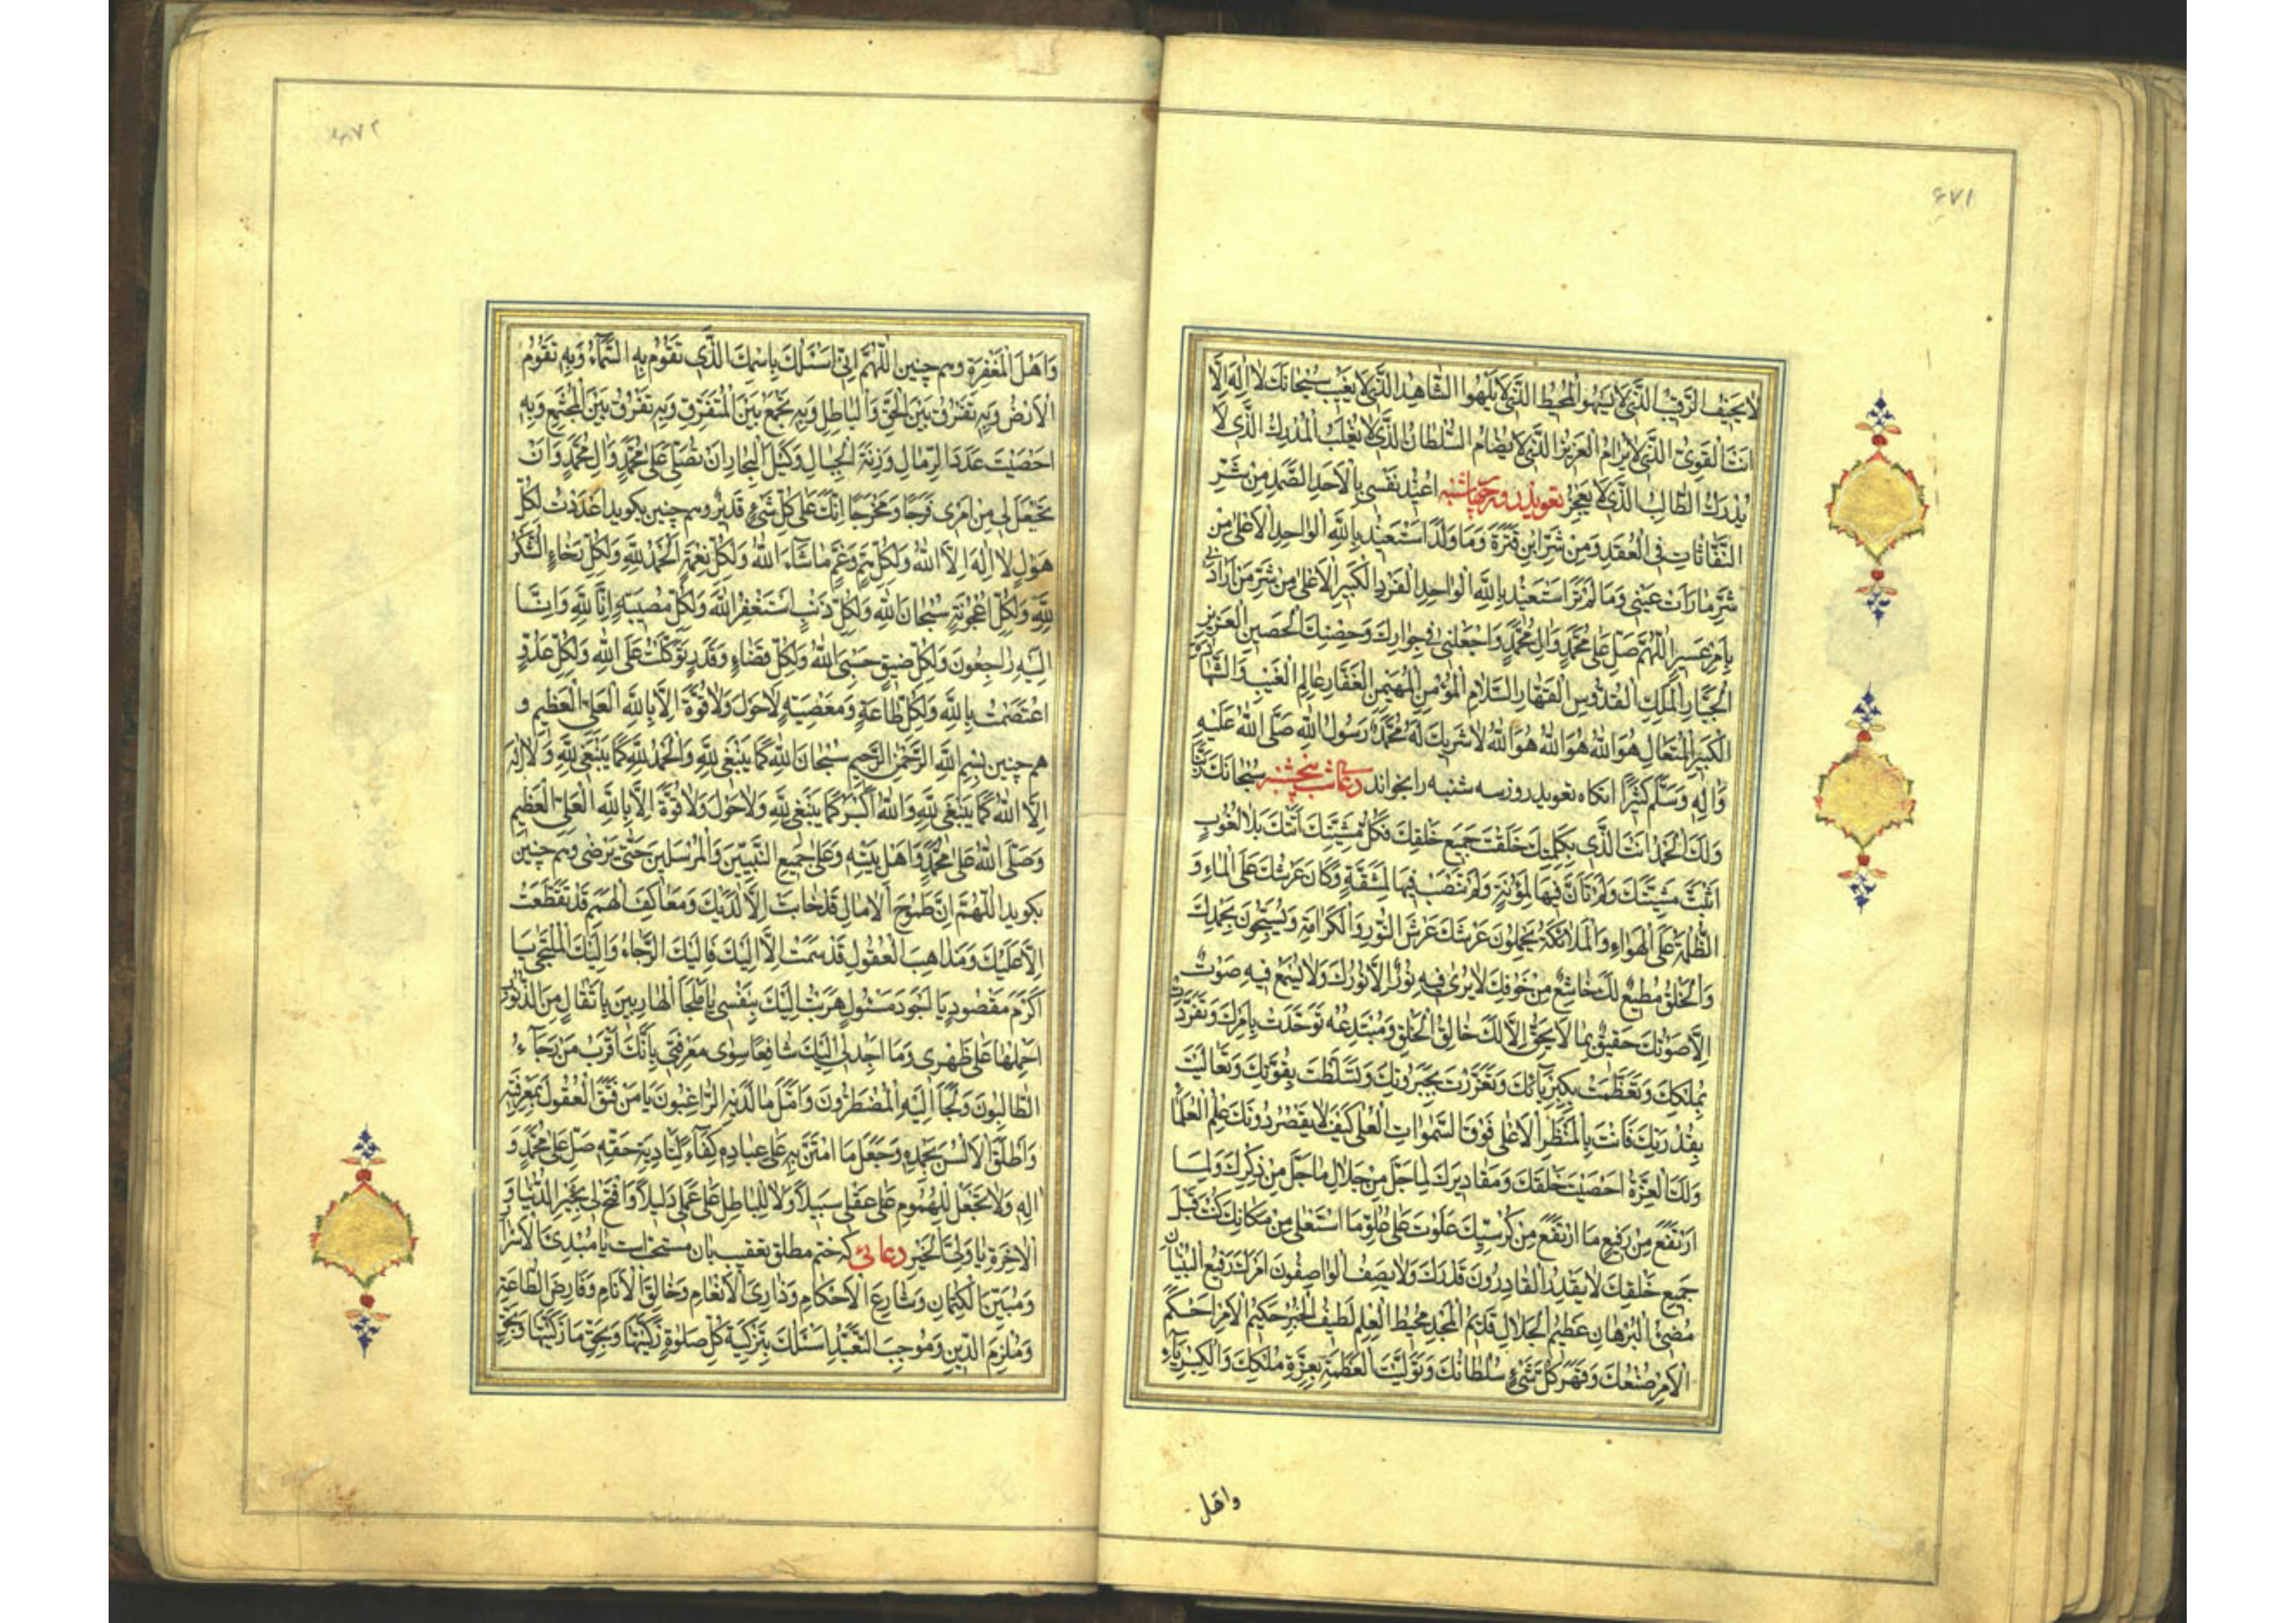 ٤٧١
لا يجيف الرقيب الذي لا يسهو المحيط الذي لا يلهو الشاهد الذي لا يغيب سبحانك لا اله الا
انت القوي الذي لا يرام العزيز الذي لا يضام السلطان الذي لا يغلب المدرك الذي لا
يدرك الطالب الذي لا يعجز تعويذ روز چهارشنبه اعيذ نفسي بالاحد الصمد من شر
النفاثات في العقد ومن شر ابن قترة وما ولد استعيذ بالله الواحد الاعلى من
شر ما رات عيني وما لم تر استعيذ بالله الواحد الفرد الكبير الاعلى من شر من ارادني
بامر عسير اللهم صل على محمد وال محمد واجعلني في جوارك وحصنك الحصين العزيز
الجبار الملك القدوس القهار السلام المؤمن المهيمن الغفار عالم الغيب والشهادة
الكبير المتعال هو الله هو الله هو الله لا شريك له محمد رسول الله صلى الله عليه
واله وسلم كثيرا انكاه تعويذ روز سه شنبه را بخواند دعاى شب پنجشنبه سبحانك ربنا
ولك الحمد انت الذي بكلمتك خلقت جميع خلقك فكل مشيتك اتتك بلا لغوب
اثبت مشيتك ولم تان فيها لمؤنة ولم تنصب فيها لمشقة وكان عرشك على الماء و
الظلمة على الهواء والملائكة يحملون عرشك عرش النور والكرامة ويسبحون بحمدك
والخلق مطيع لك خاشع من خوفك لا يرى فيه نور الا نورك ولا يسمع فيه صوت
الا صوتك حقيق بما لا يحق الا لك خالق الخلق ومبتدعه توحدت بامرك وتفردت
بملكك وتعظمت بكبريائك وتعززت بجبروتك وتسلطت بقوتك وتعاليت
بقدرتك فانت بالمنظر الاعلى فوق السموات العلى كيف لا يقصر دونك علم العلماء
ولك العزة احصيت خلقك ومقاديرك لما جل من جلال ما جل من ذكرك ولما
ارتفع من رفيع ما ارتفع من كرسيك علوت على علو ما استعلى من مكانك كنت قبل
جميع خلقك لا يقدر القادرون قدرك ولا يصف الواصفون امرك رفيع البنيان
مضيء البرهان عظيم الجلال قديم المجد محيط العلم لطيف الخبر حكيم الامر احكم
الامر صنعك وقهر كل شيء سلطانك وتوليت العظمة بعزة ملكك والكبرياء
واهل
٤٧٢
واهل المغفرة وهم چنين اللهم اني اسئلك باسمك الذي تقوم به السماء وبه تقوم
الارض وبه تفرق بين الحق والباطل وبه تجمع بين المتفرق وبه تفرق بين المجتمع وبه
احصيت عدد الرمال وزنة الجبال وكيل البحار ان تصلي على محمد وال محمد وان
تجعل لي من امري فرجا ومخرجا انك على كل شيء قدير وهم چنين بكويد اعددت لكل
هول لا اله الا الله ولكل هم وغم ما شاء الله ولكل نعمة الحمد لله ولكل رخاء الشكر
لله ولكل اعجوبة سبحان الله ولكل ذنب استغفر الله ولكل مصيبة انا لله وانا
اليه راجعون ولكل ضيق حسبي الله ولكل قضاء وقدر توكلت على الله ولكل عدو
اعتصمت بالله ولكل طاعة ومعصية لا حول ولا قوة الا بالله العلي العظيم و
هم چنين بسم الله الرحمن الرحيم سبحان الله كما ينبغي لله والحمد لله كما ينبغي لله ولا اله
الا الله كما ينبغي لله والله اكبر كما ينبغي لله ولا حول ولا قوة الا بالله العلي العظيم
وصلى الله على محمد واهل بيته وعلى جميع النبيين والمرسلين حتى يرضى وهم چنين
بكويد اللهم ان طموح الامال قد خابت الا لديك ومعاكف الهمم قد تقطعت
الا عليك ومذاهب العقول قد سمت الا اليك فاليك الرجاء واليك الملتجى يا
اكرم مقصود يا اجود مسئول هربت اليك بنفسي يا ملجأ الهاربين باثقال من الذنوب
احملها على ظهري وما اجد لي اليك شافعا سوى معرفتي بانك اقرب من رجاه
الطالبون ولجأ اليه المضطرون وامل ما لديه الراغبون يا من فتق العقول بمعرفته
واطلق الالسن بحمده وجعل ما امتن به على عباده كفاء لتادية حقه صل على محمد و
اله ولا تجعل للهموم على عقلي سبيلا ولا للباطل على عملي دليلا وافتح لي بخير الدنيا و
الاخرة يا ولي الخير دعائى كه ختم مطلق تعقيب بان مستحب است يا مبدئ الاسرار
ومبين الكتمان وشارع الاحكام وذارئ الانعام وخالق الانام وفارض الطاعة
وملزم الدين وموجب التعبد اسئلك بتزكية كل صلوة زكيتها وبحق ما زكيتها وبحق